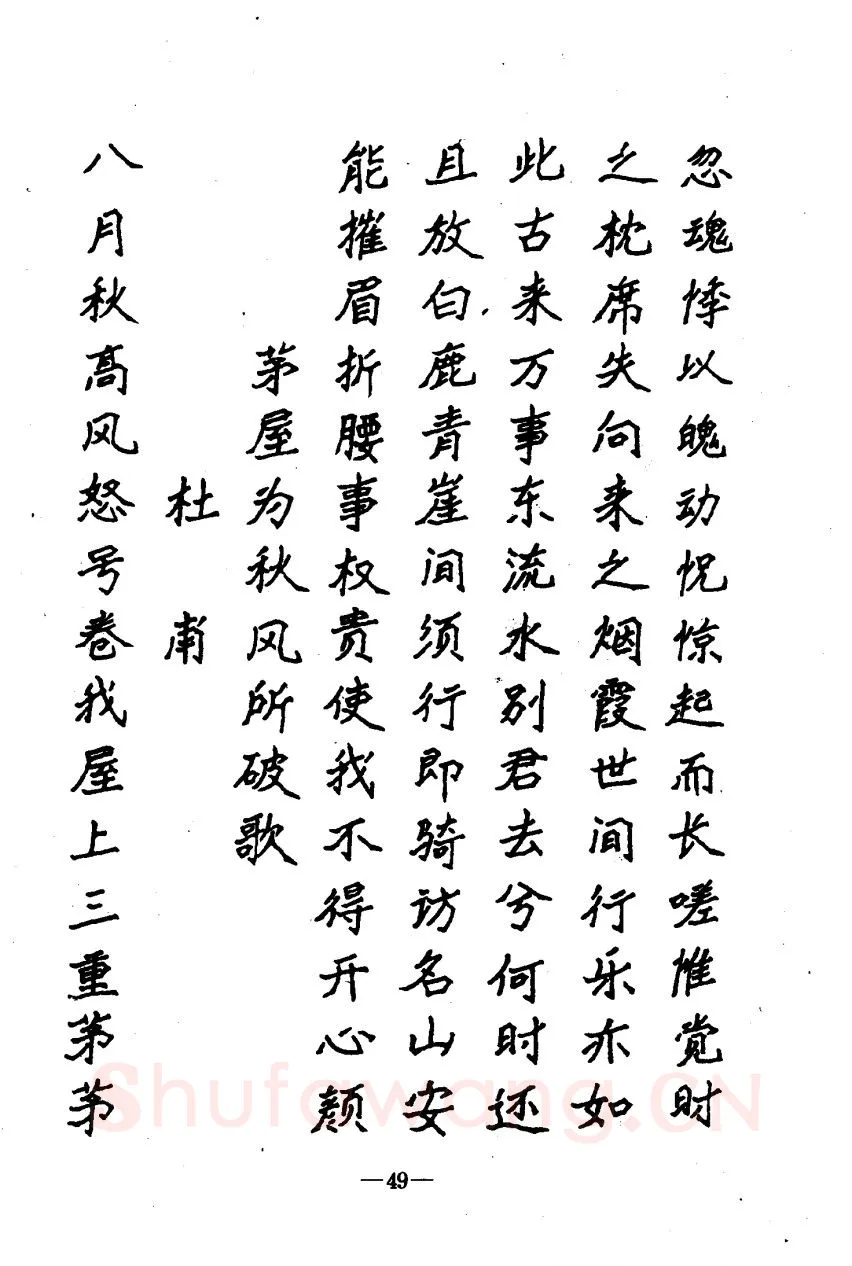 忽魂悸以魄动怳惊起而长嗟惟觉时
之枕席失向来之烟霞世间行乐亦如
此古来万事东流水别君去兮何时还
且放白鹿青崖间须行即骑访名山安
能摧眉折腰事权贵使我不得开心颜
茅屋为秋风所破歌
杜甫
八月秋高风怒号卷我屋上三重茅茅
—49—
Shufawang.CN